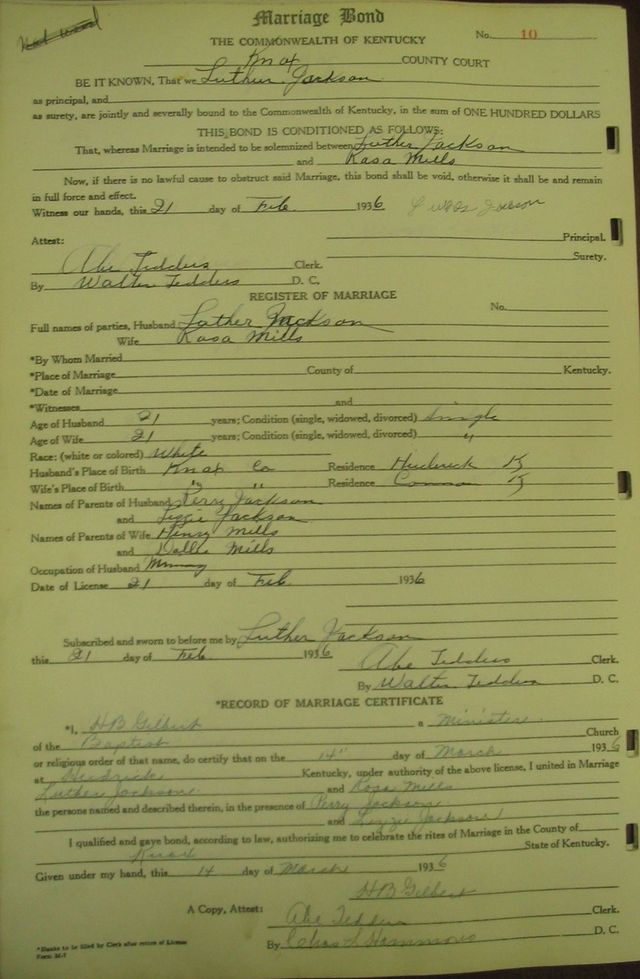 Marriage Bond
THE COMMONWEALTH OF KENTUCKY No. 10
Knox COUNTY COURT
BE IT KNOWN, That we Luther Jackson
as principal, and
as surety, are jointly and severally bound to the Commonwealth of Kentucky, in the sum of ONE HUNDRED DOLLARS
THIS BOND IS CONDITIONED AS FOLLOWS:
That, whereas Marriage is intended to be solemnized between Luther Jackson
and Rosa Mills
Now, if there is no lawful cause to obstruct said Marriage, this bond shall be void, otherwise it shall be and remain
in full force and effect.
Witness our hands, this 21 day of Feb 1936
Attest: Principal.
Surety.
Abe Tedders Clerk.
By Walter Tedders D. C.
REGISTER OF MARRIAGE
No.
Full names of parties, Husband Luther Jackson
Wife Rosa Mills
*By Whom Married
*Place of Marriage County of Kentucky.
*Date of Marriage
*Witnesses and
Age of Husband 21 years; Condition (single, widowed, divorced) Single
Age of Wife 21 years; Condition (single, widowed, divorced) "
Race: (white or colored) White
Husband's Place of Birth Knox Co Residence Ky
Wife's Place of Birth " " Residence Ky
Names of Parents of Husband Perry Jackson
and Lizzie Jackson
Names of Parents of Wife Henry Mills
and Mills
Occupation of Husband Mining
Date of License 21 day of Feb 1936
Subscribed and sworn to before me by Luther Jackson
this 21 day of Feb 1936 Abe Tedders Clerk.
By Walter Tedders D. C.
*RECORD OF MARRIAGE CERTIFICATE
*I, HB Gilbert a Minister
of the Baptist Church
or religious order of that name, do certify that on the 14" day of March 1936
at Kentucky, under authority of the above license, I united in Marriage
Luther Jackson and Rosa Mills
the persons named and described therein, in the presence of Perry Jackson
and Lizzie Jackson
I qualified and gave bond, according to law, authorizing me to celebrate the rites of Marriage in the County of
Knox State of Kentucky.
Given under my hand, this 14 day of March 1936
HB Gilbert
A Copy, Attest: Abe Tedders Clerk.
By D. C.
*Blanks to be filled by Clerk after return of License